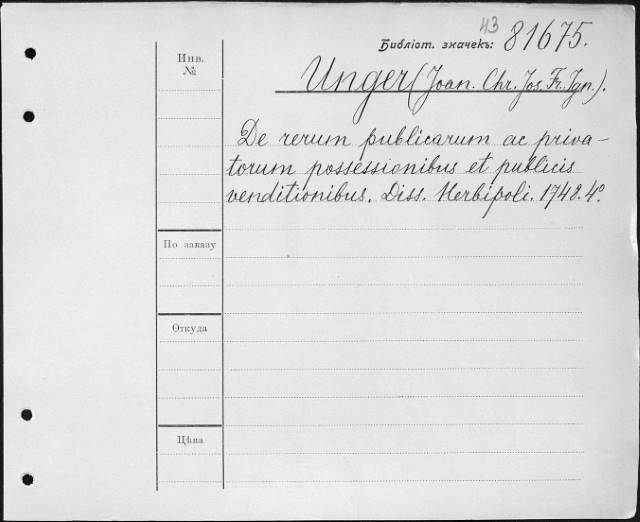 43
Библіот. значекъ: 81675.
Инв.
№
Unger (Joan. Chr. Jos. Fr. Ign.).
De rerum publicarum ac priva-
torum possessionibus et publicis
venditionibus. Diss. Herbipoli. 1748. 4°.
По заказу
Откуда
Цѣна